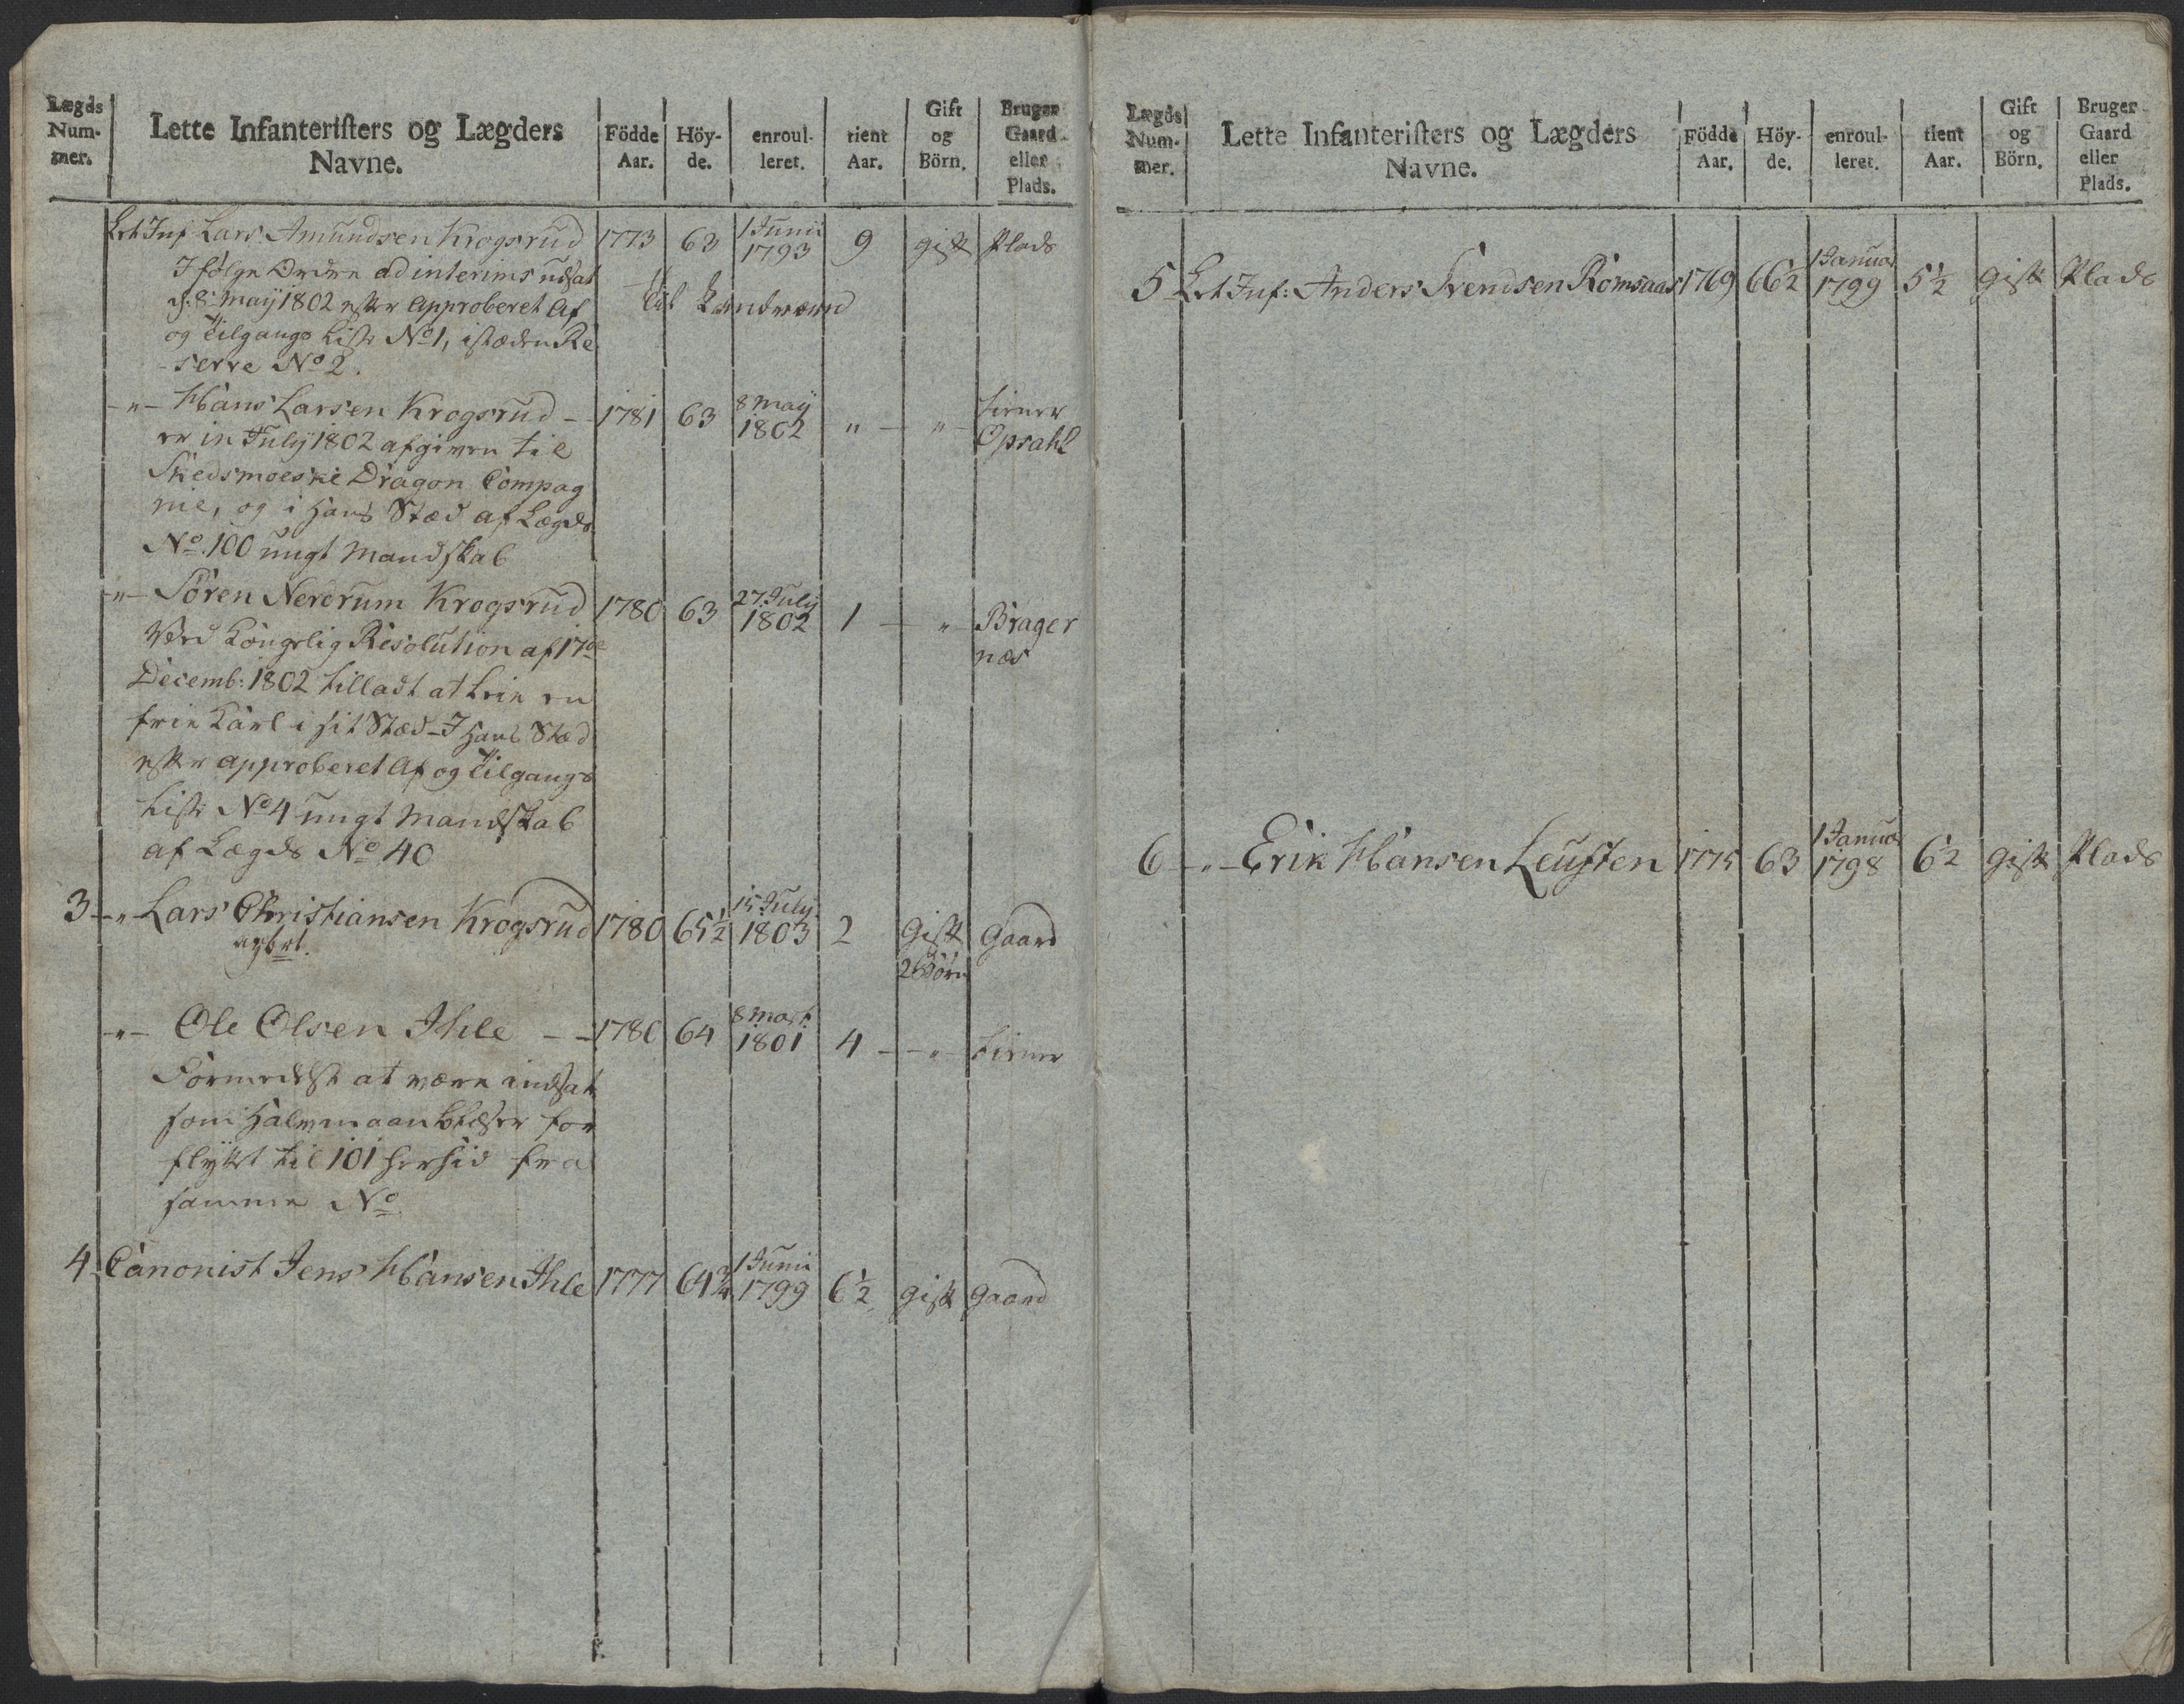 Lægds Num- mer.
Lette Infanteristers og Lægders Navne.
Födde Aar.
Höy- de.
enroul- leret.
tient Aar.
Gift og Börn.
Bruger Gaard eller Plads.
Let Inf Lars Amundsen Krogsrud 1773 63 1 Junii 1793 9 gift Plads
I følge Ordre ad interims udsat
d: 8 Maÿ 1802 efter Approberet Af til Landværn
og Tilgangs Liste No 1, istæden Re
serve No 2.
-"- Hans Larsen Krogsrud - 1781 63 8 Maÿ 1802 " - " - tiener Opsahl
er in Julÿ 1802 afgiven til
Skedsmoeske Dragon Compag
nie, og i hans Stæd af Lægds
No. 100 ungt Mandskab
-"- Sören Nerdrum Krogsrud 1780 63 27 Julÿ 1802 1 - " - Brager næs
Ved Kongelig Resolution af 17de
Decemb: 1802 tilladt at leie en
frie Karl i sit Stæd - I hans Stæd
efter approberet Af og Tilgangs
Liste No 4 ungt Mandskab
af Lægds No 40
3 -"- Lars Christiansen Krogsrud 1780 65½ 15 Julÿ 1803 2 Gift 2 Börn Gaard
-"- Ole Olsen Ihle - - 1780 64 8 Mart 1801 4 - - " - tiener
Formedelst at være andsat
som Halvmaanblæser for
flyttet til 101 hersid fra
samme No
4 Canonist Jens Hansen Ihle 1777 64¾ 1 Junii 1799 6½ gift Gaard
Lægds Num- mer.
Lette Infanteristers og Lægders Navne.
Födde Aar.
Höy- de.
enroul- leret.
tient Aar.
Gift og Börn.
Bruger Gaard eller Plads.
5 Let Inf: Anders Svendsen Romsaas 1769 66½ 1 Januar 1799 5½ Gift Plads
6 -"- Erik Hansen Leusten 1775 63 1 Januar 1798 6½ Gift Plads